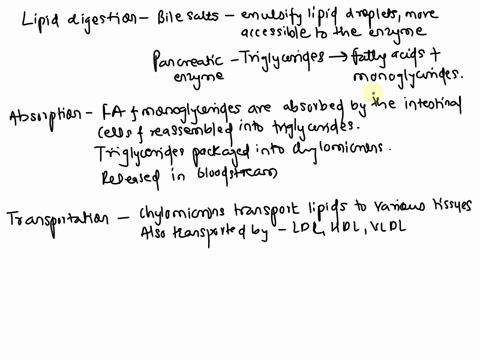 Lipid digestion - Bile salts - emulsify lipid droplets, more
accessible to the enzyme
Pancreatic - Triglycerides → fatty acids +
enzyme monoglycerides.
Absorption - FA & monoglycerides are absorbed by the intestinal
cells & reassembled into triglycerides.
Triglycerides packaged into chylomicrons.
Released in bloodstream
Transportation - chylomicrons transport lipids to various tissues
Also transported by - LDL, HDL, VLDL